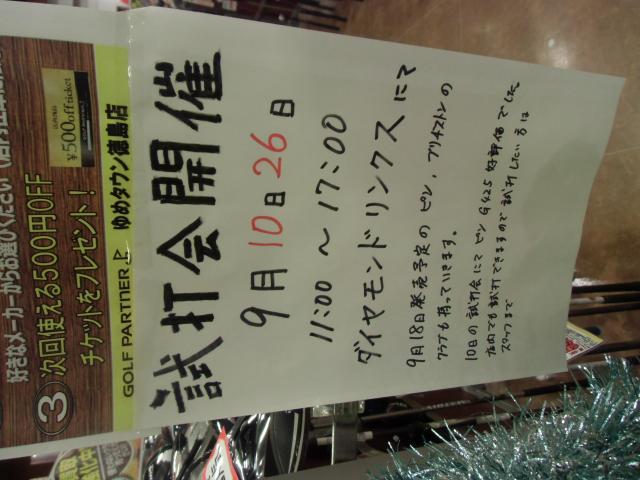 好きなメーカーからお選びください
③ 次回使える500円OFF
チケットをプレゼント!
¥500off ticket
GOLF PARTNER ゆめタウン徳島店
試打会開催
9月10日26日
11:00～17:00
ダイヤモンドリンクスにて
9月18日発売予定のピン、ブリヂストンの
クラブも持っていきます。
10日の試打会にてピンG425好評価でした。
店内でも試打できますので試打したい方は
スタッフまで